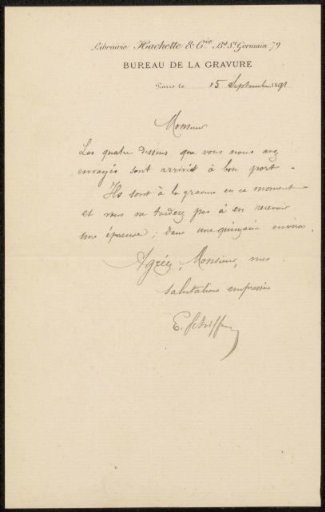 Librairie Hachette & Cie, Bd St Germain 79
BUREAU DE LA GRAVURE
Paris le 15 Septembre 1891
Monsieur
Les quatre dessins que vous nous avez
envoyés sont arrivés à bon port.
Ils sont à la gravure en ce moment
et vous ne tardez pas à en recevoir
une épreuve; dans une quinzaine environ.
Agréez, Monsieur, mes
salutations empressées
E.